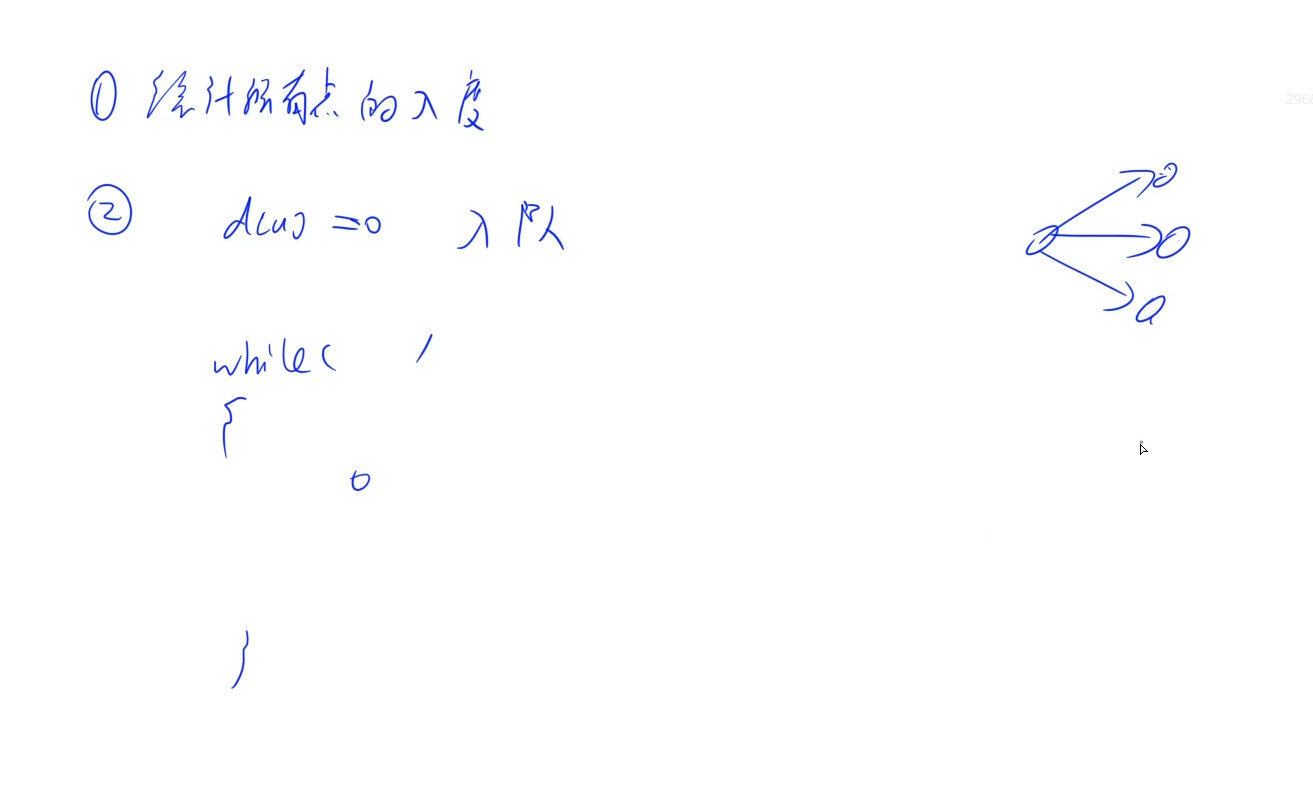 ① 统计所有点的入度
② d(u) = 0 入队
while( )
{
}
2968